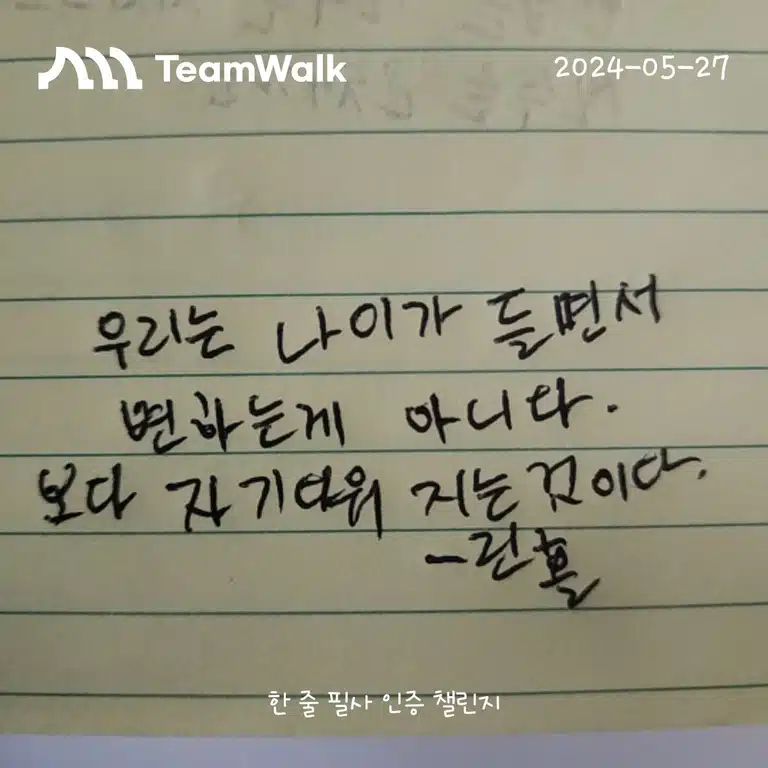 TeamWalk
2024-05-27
우리는 나이가 들면서
변하는게 아니다.
보다 자기다워 지는것이다.
-린홀
한 줄 필사 인증 챌린지